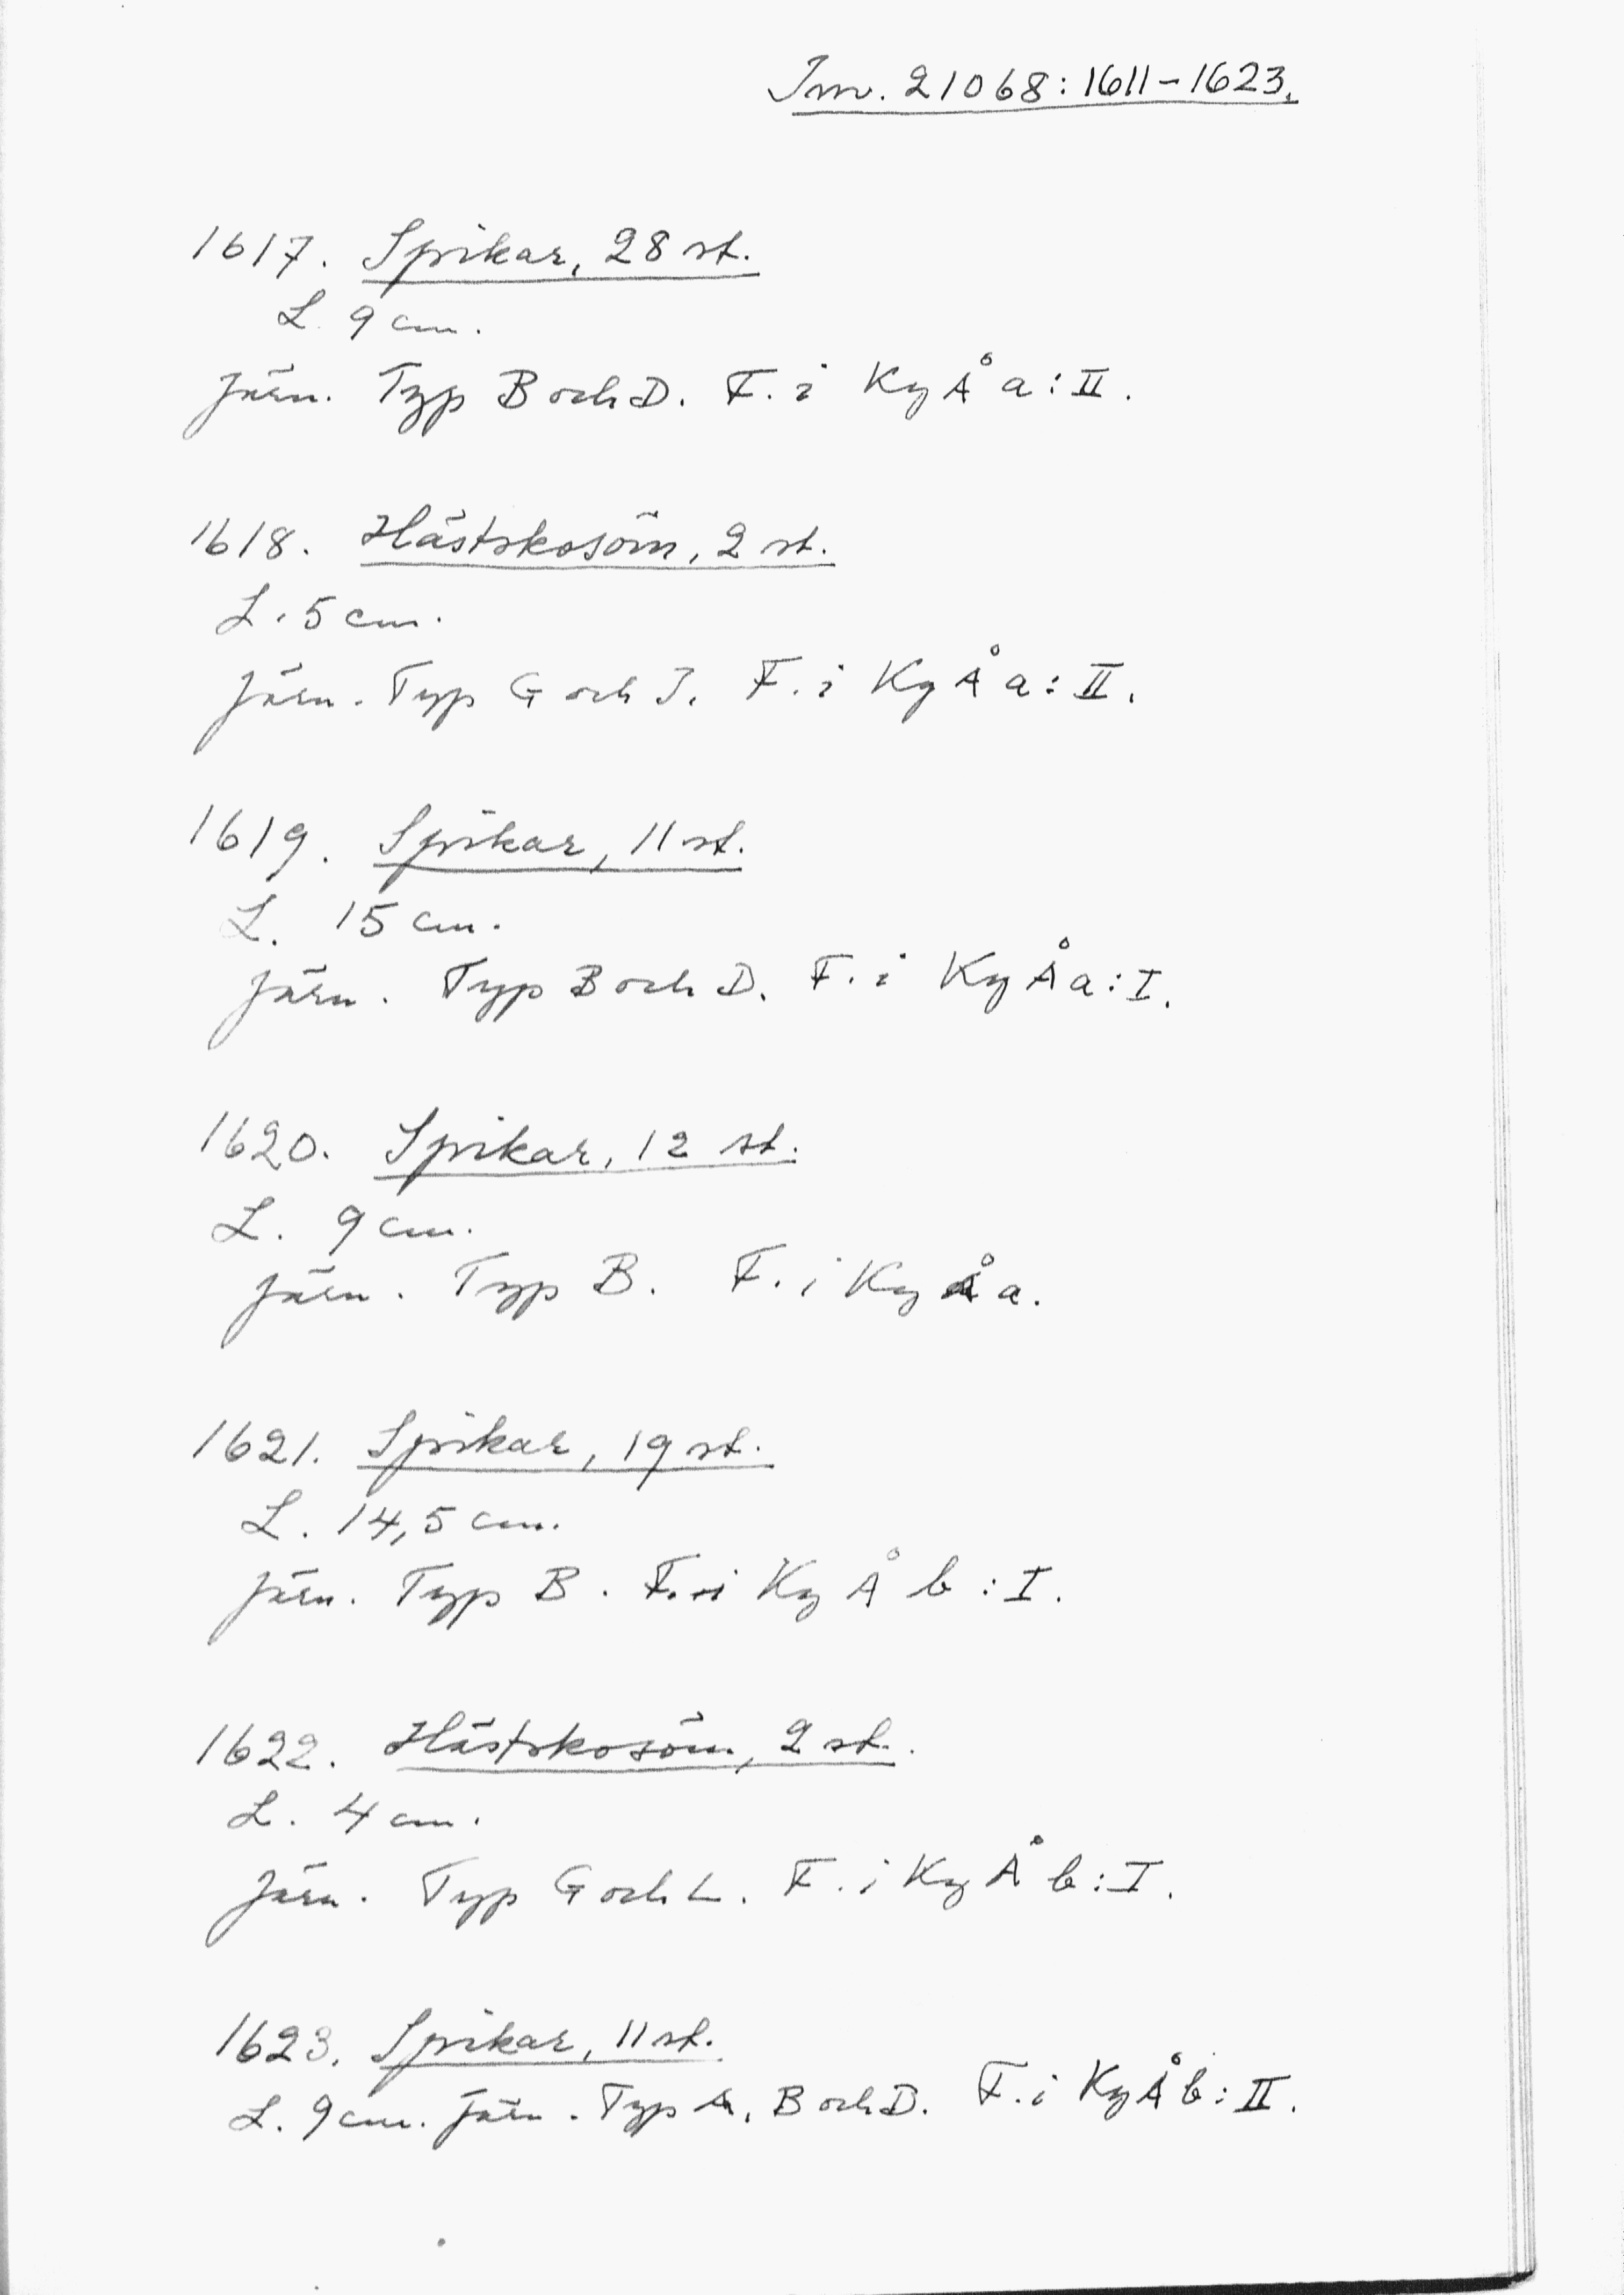 Inv. 21068:1611-1623.
1617. Spikar, 28 st.
L. 9 cm.
Järn. Typ B och D. F. i Ky Å a:II.
1618. Hästskosöm, 2 st.
L. 5 cm.
Järn. Typ G och J. F. i Ky Å a:II.
1619. Spikar, 11 st.
L. 15 cm.
Järn. Typ B och D. F. i Ky Å a:I.
1620. Spikar, 12 st.
L. 9 cm.
Järn. Typ B. F. i Ky Å a.
1621. Spikar, 19 st.
L. 14,5 cm.
Järn. Typ B. F. i Ky Å b:I.
1622. Hästskosöm, 2 st.
L. 4 cm.
Järn. Typ G och L. F. i Ky Å b:I.
1623. Spikar, 11 st.
L. 9 cm. Järn. Typ A, B och D. F. i Ky Å b:II.